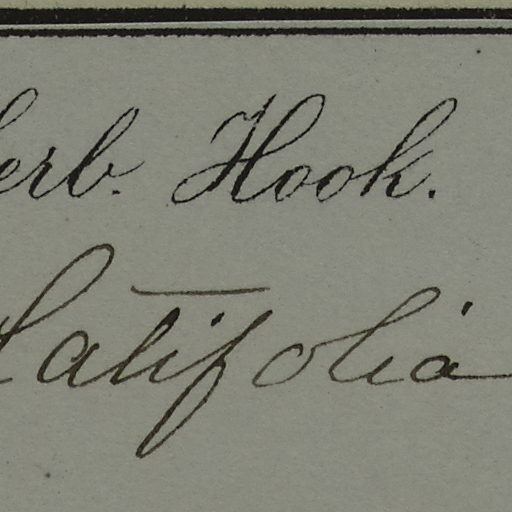 erb. Hook.
latifolia